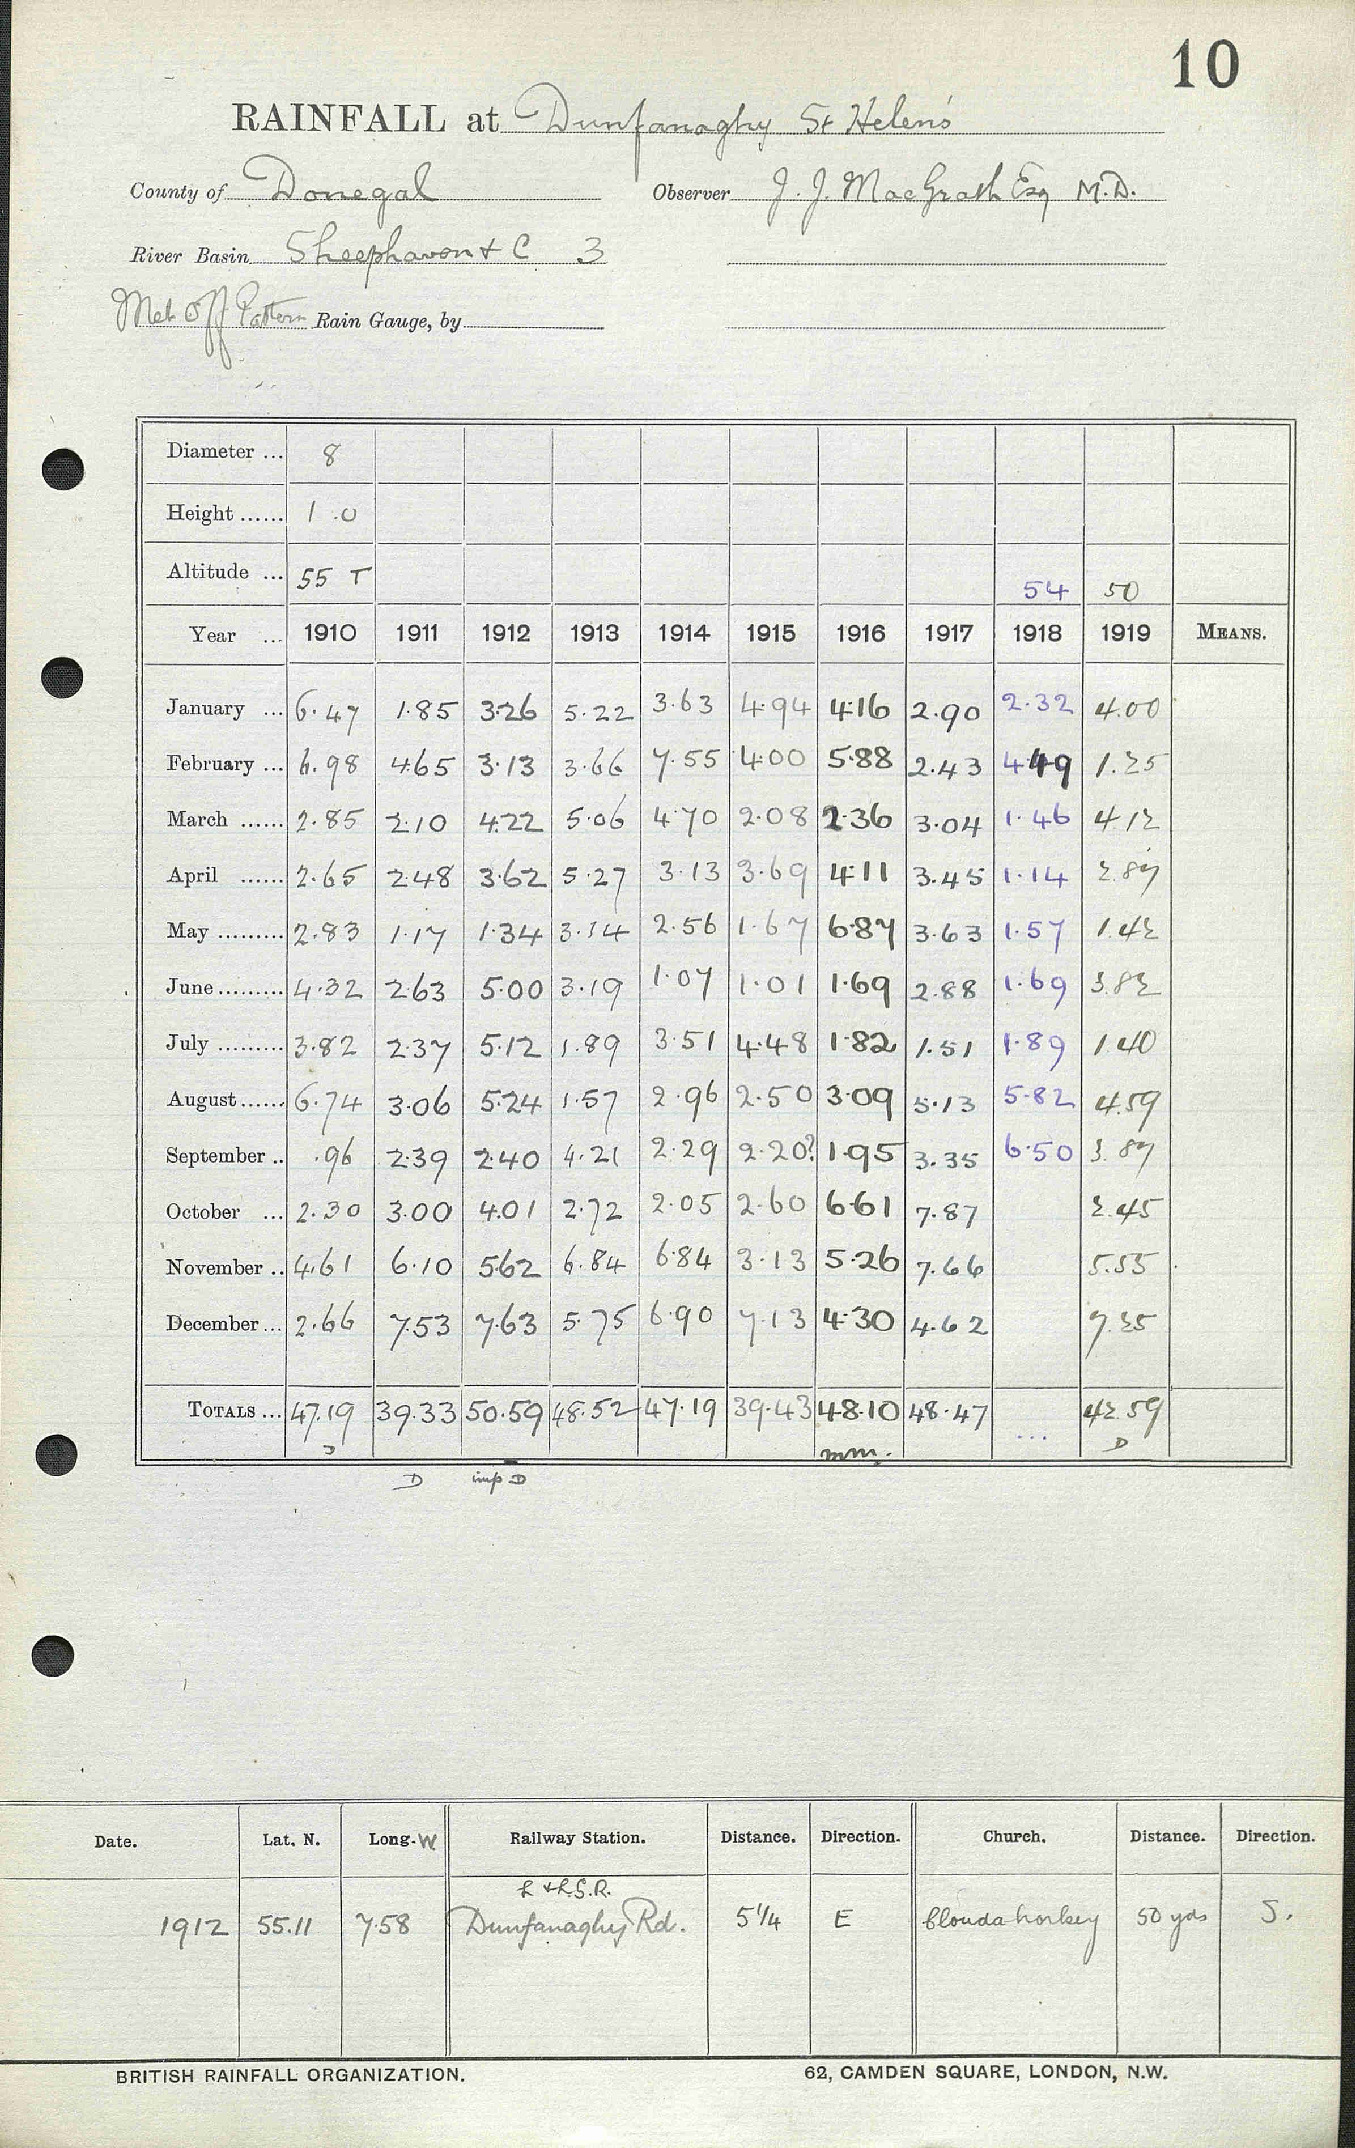 10
RAINFALL at Dunfanaghy St Helen's
County of Donegal Observer J. J. MacGrath Esq M.D.
River Basin Sheephaven & C 3
Met Off Pattern Rain Gauge, by
Diameter ... 8
Height ...... 1.0
Altitude ... 55 T 54 50
Year ... 1910 1911 1912 1913 1914 1915 1916 1917 1918 1919 MEANS.
January ... 6.47 1.85 3.26 5.22 3.63 4.94 4.16 2.90 2.32 4.00
February ... 6.98 4.65 3.13 3.66 7.55 4.00 5.88 2.43 4.49 1.25
March ...... 2.85 2.10 4.22 5.06 4.70 2.08 2.36 3.04 1.46 4.12
April ...... 2.65 2.48 3.62 5.27 3.13 3.69 4.11 3.45 1.14 2.87
May ......... 2.83 1.17 1.34 3.14 2.56 1.67 6.87 3.63 1.57 1.42
June ......... 4.32 2.63 5.00 3.19 1.07 1.01 1.69 2.88 1.69 3.82
July ......... 3.82 2.37 5.12 1.89 3.51 4.48 1.82 1.51 1.89 1.40
August ...... 6.74 3.06 5.24 1.57 2.96 2.50 3.09 5.13 5.82 4.59
September .. .96 2.39 2.40 4.21 2.29 2.20? 1.95 3.35 6.50 3.87
October ... 2.30 3.00 4.01 2.72 2.05 2.60 6.61 7.87 2.45
November .. 4.61 6.10 5.62 6.84 6.84 3.13 5.26 7.66 5.55
December ... 2.66 7.53 7.63 5.75 6.90 7.13 4.30 4.62 7.25
TOTALS ... 47.19 39.33 50.59 48.52 47.19 39.43 48.10 48.47 ... 42.59
D mm. D
D imp D
Date. Lat. N. Long. W Railway Station. Distance. Direction. Church. Distance. Direction.
L & L.S.R.
1912 55.11 7.58 Dunfanaghy Rd. 5 1/4 E Cloudahorkey 50 yds S.
BRITISH RAINFALL ORGANIZATION. 62, CAMDEN SQUARE, LONDON, N.W.